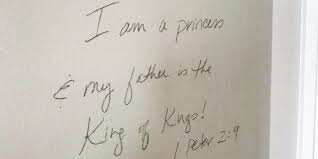 I am a princess
& my father is the
King of Kings!
1 Peter 2:9